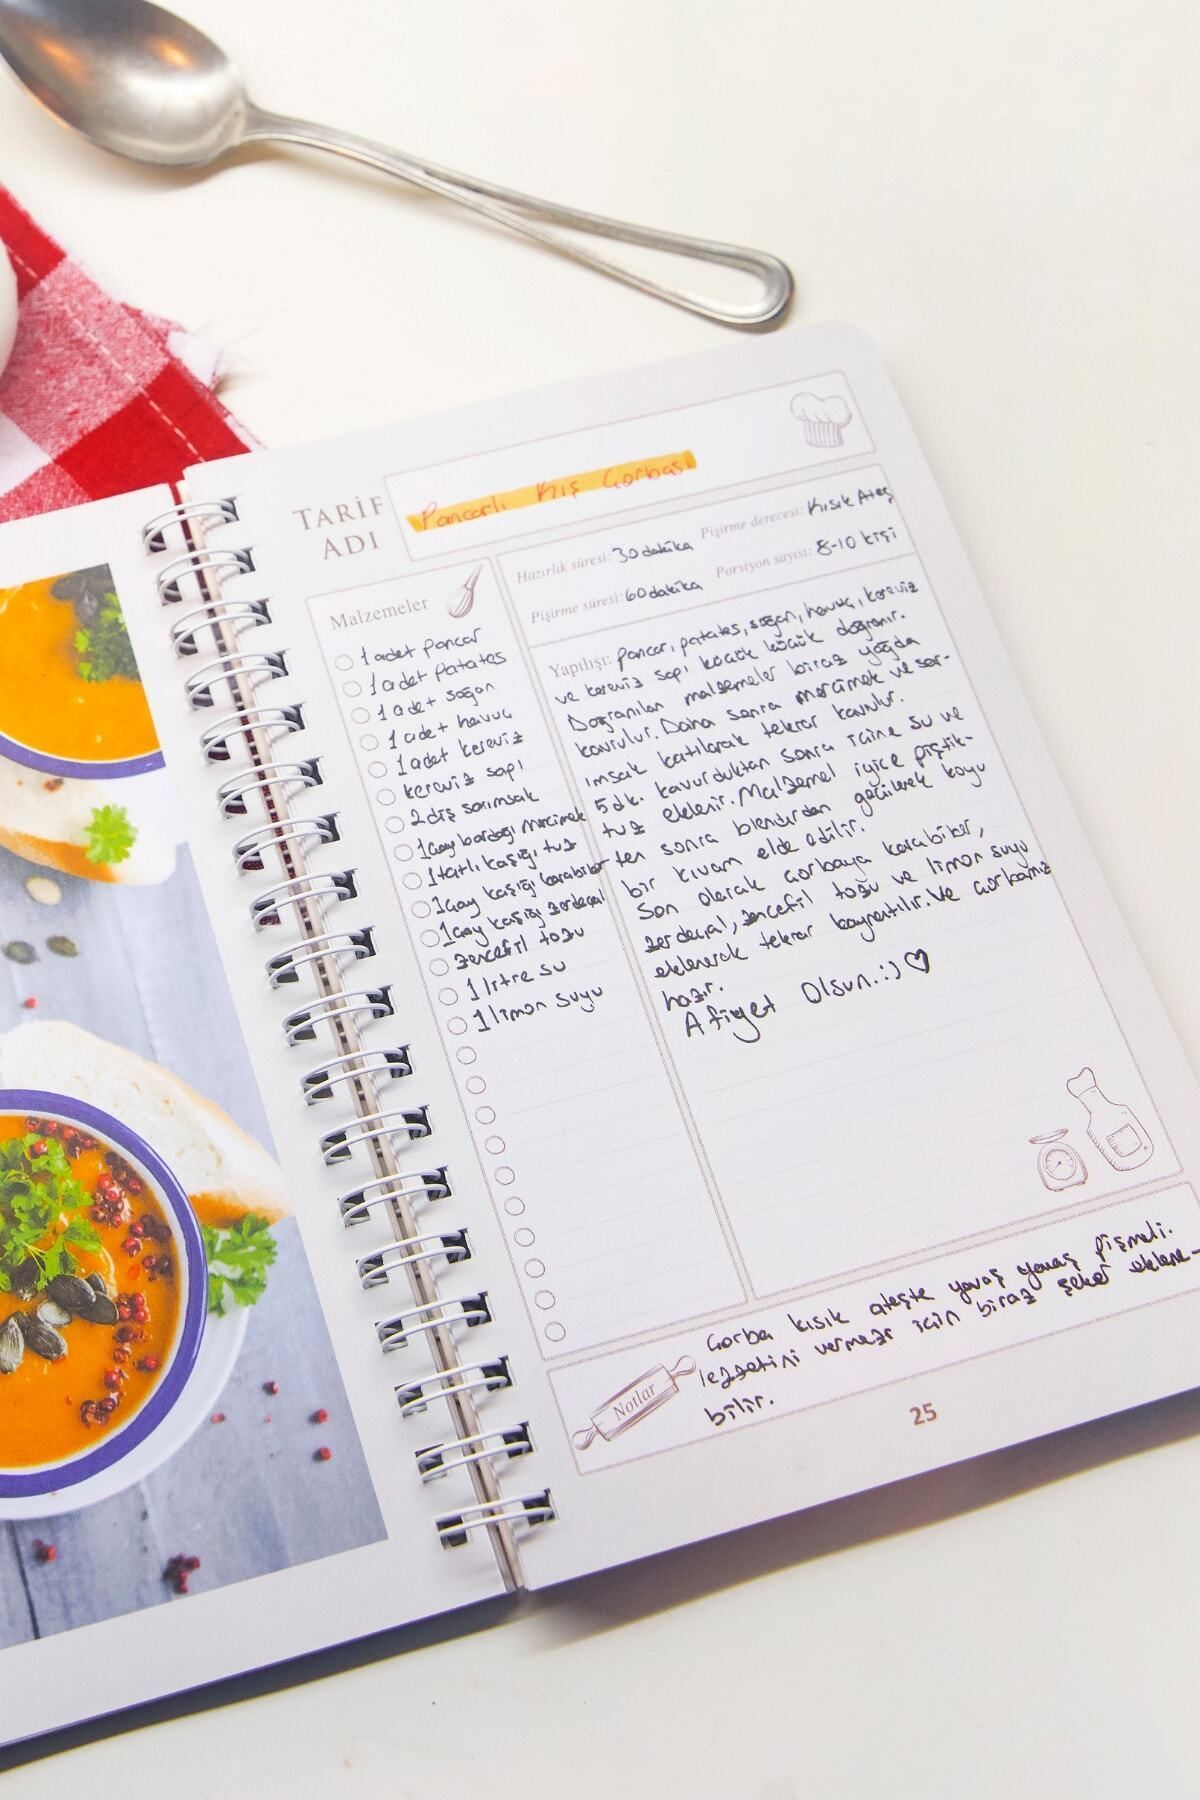 TARİF
ADI
Pancarlı Kış Çorbası
Hazırlık süresi: 30 dakika
Pişirme derecesi: Kısık Ateş
Pişirme süresi: 60 dakika
Porsiyon sayısı: 8-10 kişi
Malzemeler
1 adet pancar
1 adet patates
1 adet soğan
1 adet havuç
1 adet kereviz
kereviz sapı
2 diş sarımsak
1 çay bardağı mercimek
1 tatlı kaşığı tuz
1 çay kaşığı karabiber
1 çay kaşığı zerdeçal
zencefil tozu
1 litre su
1 limon suyu
Yapılışı: pancar, patates, soğan, havuç, kereviz
ve kereviz sapı küçük küçük doğranır.
Doğranılan malzemeler biraz yağda
kavrulur. Daha sonra mercimek ve sar-
ımsak katılarak tekrar kavrulur.
5 dk. kavurduktan sonra içine su ve
tuz eklenir. Malzemel iyice piştik-
ten sonra blendırdan geçilerek koyu
bir kıvam elde edilir.
Son olarak çorbaya karabiber,
zerdeçal, zencefil tozu ve limon suyu
eklenerek tekrar kaynatılır. Ve çorbamız
hazır.
Afiyet Olsun. :)
Notlar
Çorba kısık ateşte yavaş yavaş pişmeli.
lezzetini vermesi için biraz şeker eklene-
bilir.
25